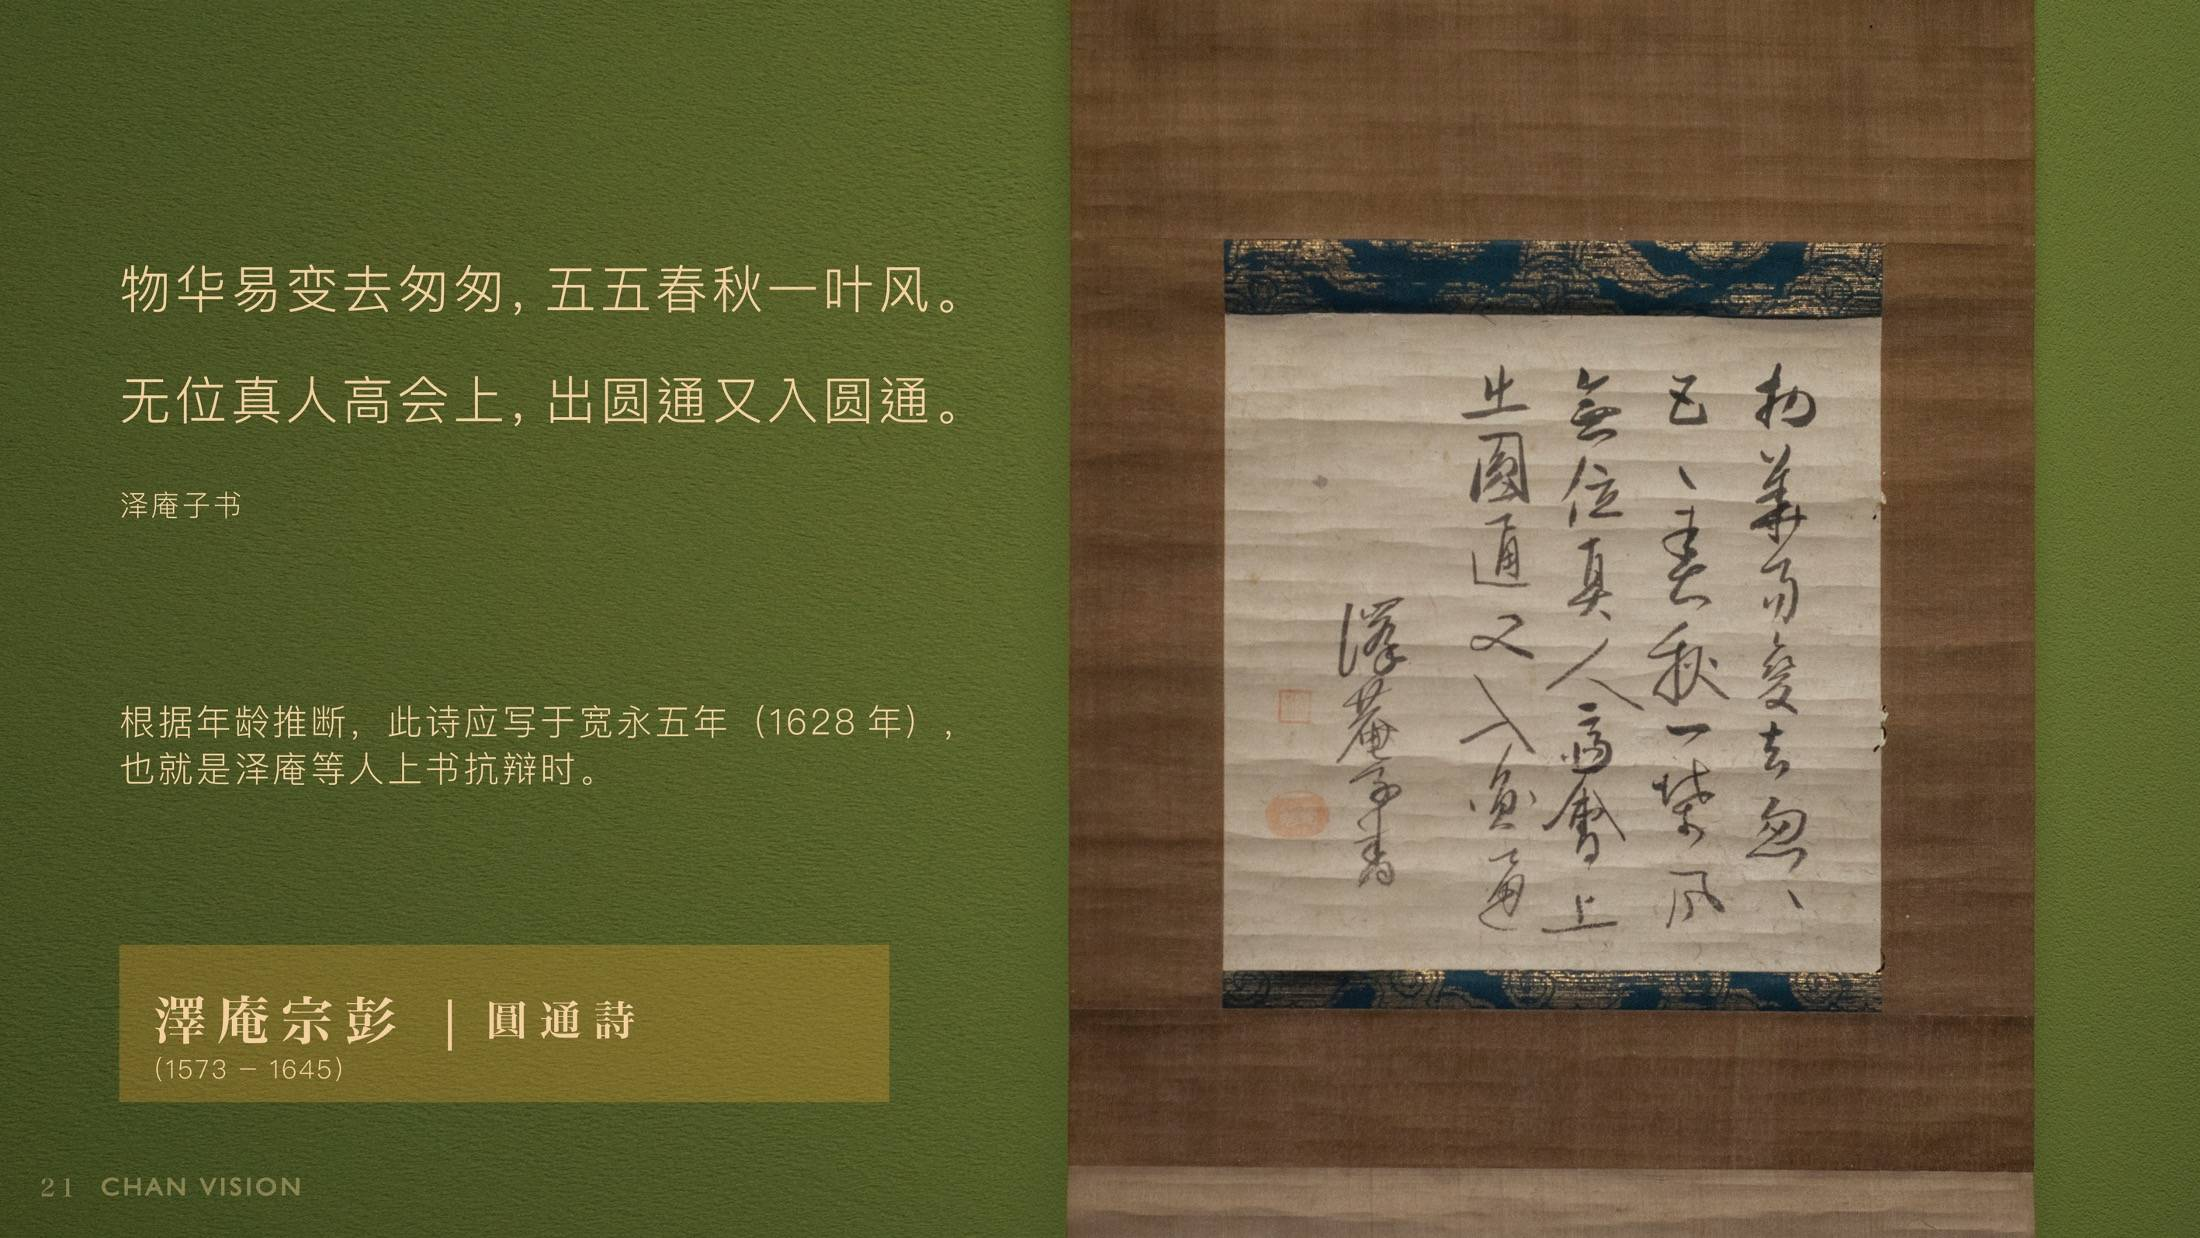 物华易变去匆匆,五五春秋一叶风。
无位真人高会上,出圆通又入圆通。
泽庵子书
根据年龄推断，此诗应写于宽永五年（1628 年），
也就是泽庵等人上书抗辩时。
澤庵宗彭 | 圓通詩
(1573 – 1645)
21 CHAN VISION
物華易變去匆〻
五〻春秋一葉風
無位真人高會上
出圓通又入圓通
澤菴子書